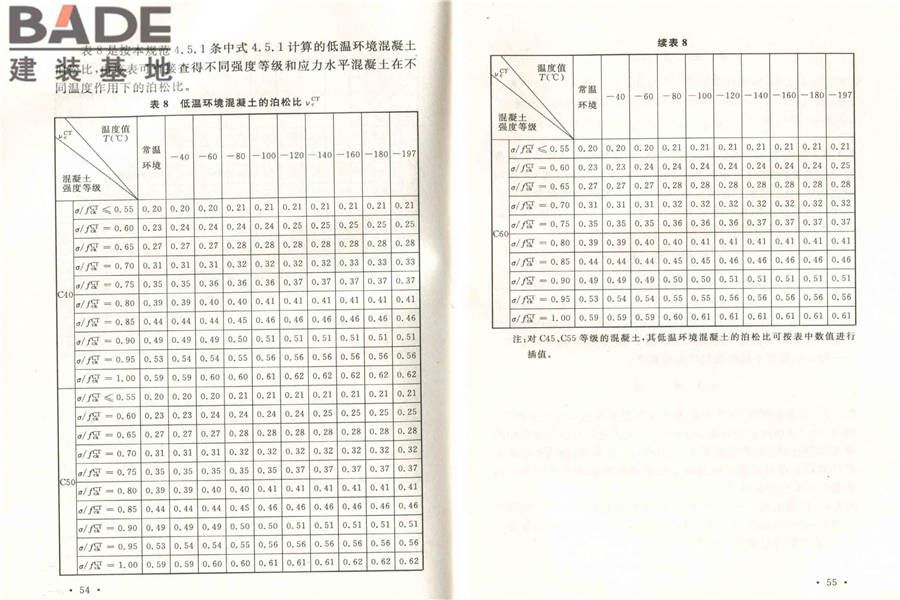 BADE
建装基地
表 8 是按本规范 4.5.1 条中式 4.5.1 计算的低温环境混凝土
查得不同强度等级和应力水平混凝土在不
同温度作用下的泊松比。
表 8 低温环境混凝土的泊松比 νcCT
νcCT 温度值 T(℃) 混凝土强度等级 常温环境 −40 −60 −80 −100 −120 −140 −160 −180 −197
C40
σ/fckCT ≤ 0.55 0.20 0.20 0.20 0.21 0.21 0.21 0.21 0.21 0.21 0.21
σ/fckCT = 0.60 0.23 0.24 0.24 0.24 0.24 0.25 0.25 0.25 0.25 0.25
σ/fckCT = 0.65 0.27 0.27 0.27 0.28 0.28 0.28 0.28 0.28 0.28 0.28
σ/fckCT = 0.70 0.31 0.31 0.31 0.32 0.32 0.32 0.32 0.33 0.33 0.33
σ/fckCT = 0.75 0.35 0.35 0.36 0.36 0.36 0.37 0.37 0.37 0.37 0.37
σ/fckCT = 0.80 0.39 0.39 0.40 0.40 0.41 0.41 0.41 0.41 0.41 0.41
σ/fckCT = 0.85 0.44 0.44 0.44 0.45 0.46 0.46 0.46 0.46 0.46 0.46
σ/fckCT = 0.90 0.49 0.49 0.49 0.50 0.51 0.51 0.51 0.51 0.51 0.51
σ/fckCT = 0.95 0.53 0.54 0.54 0.55 0.56 0.56 0.56 0.56 0.56 0.56
σ/fckCT = 1.00 0.59 0.59 0.60 0.60 0.61 0.62 0.62 0.62 0.62 0.62
C50
σ/fckCT ≤ 0.55 0.20 0.20 0.20 0.21 0.21 0.21 0.21 0.21 0.21 0.21
σ/fckCT = 0.60 0.23 0.23 0.24 0.24 0.24 0.24 0.25 0.25 0.25 0.25
σ/fckCT = 0.65 0.27 0.27 0.27 0.28 0.28 0.28 0.28 0.28 0.28 0.28
σ/fckCT = 0.70 0.31 0.31 0.31 0.32 0.32 0.32 0.32 0.32 0.32 0.32
σ/fckCT = 0.75 0.35 0.35 0.35 0.35 0.35 0.37 0.37 0.37 0.37 0.37
σ/fckCT = 0.80 0.39 0.39 0.40 0.40 0.41 0.41 0.41 0.41 0.41 0.41
σ/fckCT = 0.85 0.44 0.44 0.44 0.45 0.46 0.46 0.46 0.46 0.46 0.46
σ/fckCT = 0.90 0.49 0.49 0.49 0.50 0.50 0.51 0.51 0.51 0.51 0.51
σ/fckCT = 0.95 0.53 0.54 0.54 0.55 0.56 0.56 0.56 0.56 0.56 0.56
σ/fckCT = 1.00 0.59 0.59 0.60 0.60 0.61 0.61 0.61 0.62 0.62 0.62
· 54 ·
续表 8
νcCT 温度值 T(℃) 混凝土强度等级 常温环境 −40 −60 −80 −100 −120 −140 −160 −180 −197
C60
σ/fckCT ≤ 0.55 0.20 0.20 0.20 0.21 0.21 0.21 0.21 0.21 0.21 0.21
σ/fckCT = 0.60 0.23 0.23 0.24 0.24 0.24 0.24 0.24 0.24 0.24 0.25
σ/fckCT = 0.65 0.27 0.27 0.27 0.28 0.28 0.28 0.28 0.28 0.28 0.28
σ/fckCT = 0.70 0.31 0.31 0.31 0.32 0.32 0.32 0.32 0.32 0.32 0.32
σ/fckCT = 0.75 0.35 0.35 0.35 0.36 0.36 0.36 0.37 0.37 0.37 0.37
σ/fckCT = 0.80 0.39 0.39 0.40 0.40 0.41 0.41 0.41 0.41 0.41 0.41
σ/fckCT = 0.85 0.44 0.44 0.44 0.45 0.45 0.46 0.46 0.46 0.46 0.46
σ/fckCT = 0.90 0.49 0.49 0.49 0.50 0.50 0.51 0.51 0.51 0.51 0.51
σ/fckCT = 0.95 0.53 0.54 0.54 0.55 0.55 0.56 0.56 0.56 0.56 0.56
σ/fckCT = 1.00 0.59 0.59 0.59 0.60 0.61 0.61 0.61 0.61 0.61 0.61
注:对 C45、C55 等级的混凝土,其低温环境混凝土的泊松比可按表中数值进行
插值。
· 55 ·